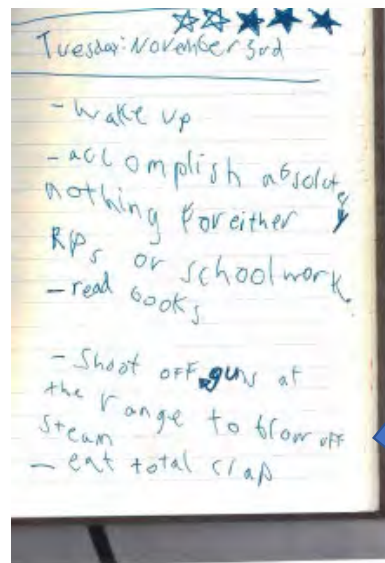 Tuesday: November 3rd
- wake up
- accomplish absolutely
nothing for either
RPs or schoolwork.
- read books
- Shoot off guns at
the range to blow off
steam
- eat total crap